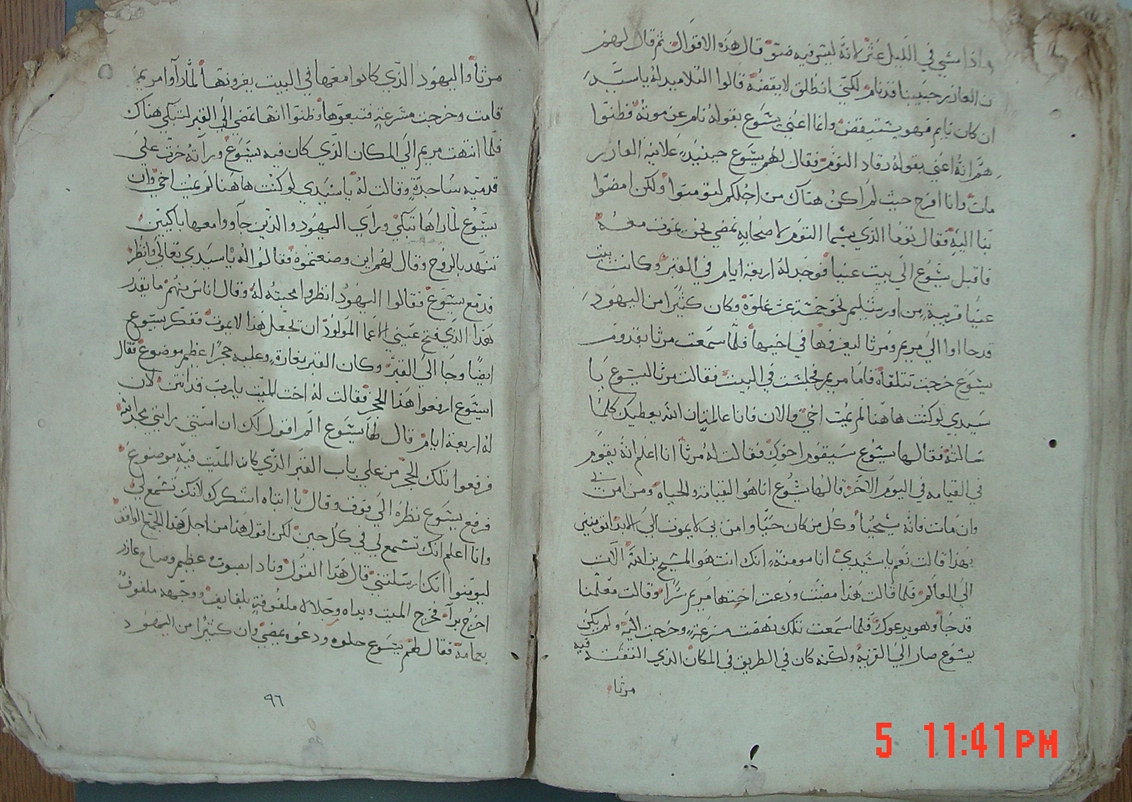 واذا مشي في الليل عثر لانه ليس فيه ضوّ قال هذه الاقوال ثم قال لهم
ان العازر حبيبنا قد نام لكني انطلق لايقضه قالوا التلاميد له ياسيد
ان كان نايم فهو يستيقض وانما اعني يشوع بقوله نام عن موته وظنوا
هم انه اعني بقوله رقاد النوم فقال لهم يشوع حينيد علانيه العازر
مات وانا افرح حيث لم اكن هناك من اجلكم لتومنوا ولكن امضوا
بنا اليه فقال توما الذي يسما التوم لاصحابه نمضي نحن نموت معه
فاقبل يشوع الى بيت عنيا فوجد له اربعة ايام في القبر وكانت بيت
عنيا قريبة من اورشليم نحو خمسة عشر غلوة وكان كثيرا من اليهود
قد جاوا الى مريم ومرثا ليعزوها في اخيها فلما سمعت مرثا بقدوم
يشوع خرجت تتلقاه فاما مريم فجلست في البيت فقالت مرثا ليشوع يا
سيدي لو كنت هاهنا لم يمت اخي والان فانا عالمة ان الله يعطيك كلما
سالته فقال لها يشوع سيقوم اخوك فقالت له مرثا انا اعلم انه يقوم
في القيامه في اليوم الاخر قال لها يشوع انا هو القيامه والحياه ومن امن بي
وان مات فانه سيحيا وكل من كان حيا وامن بي لا يموت الى الابد اتومنين
بهذا قالت نعم ياسيدي انا مومنة انك انت هو المسيح بن الله الات
الى العالم فلما قالت هذا مضت ودعت اختها مريم سرا وقالت معلمنا
قد جا وهو يدعوك فلما سمعت تلك نهضت مسرعة وخرجت اليه ولم يكن
يشوع صار الى القرية ولكنه كان في الطريق في المكان الذي التقته فيه
مرثا
مرثا واليهود الذي كانوا معها في البيت يعزونها لما راوا مريم
قامت وخرجت مسرعة فتبعوها وظنوا انها تمضي الى القبر لتبكي هناك
فلما انتهت مريم الى المكان الذي كان فيه يشوع وراته خرت على
قدميه ساجدة وقالت له ياسيدي لو كنت هاهنا لم يمت اخي وان
يشوع لما راها تبكي وراي اليهود والذين جاووا معها باكيين
تنهد بالروح وقال لهم اين وضعتموه فقالوا له ياسيدي تعالى وانظر
فدمع يشوع فقالوا اليهود انظروا محبته له وقال اناس منهم ما يقدر
هذا الذي فتح عيني الاعما المولود ان يجعل هذا لا يموت ففكر يشوع
ايضا وجا الى القبر وكان القبر مغارة وعليه حجر اعظيم موضوع فقال
يشوع ارفعوا هذا الحجر فقالت له اخت الميت يارب قد انتن لان
له اربعة ايام قال لها يشوع الم اقول لك ان امنتي رايتي مجد الله
فرفعوا تلك الحجر من على باب القبر الذي كان الميت فيه موضوع
فرفع يشوع نظره الى فوق وقال يا ابتاه اشكرك لانك تسمع لي
وانا اعلم انك تسمع لي في كل حين لكن اقول هذا من اجل هذا الجمع الواقف
ليومنوا انك ارسلتني قال هذا القول ونادا بصوت عظيم وصاح عازر
اخرج برا فخرج الميت ويداه ورجلاه ملفوفة بلفايف ووجهه ملفوف
بعمامة فقال لهم يشوع حلوه ودعوه يمضي وان كثيرا من اليهود
٩٦
5 11:41PM